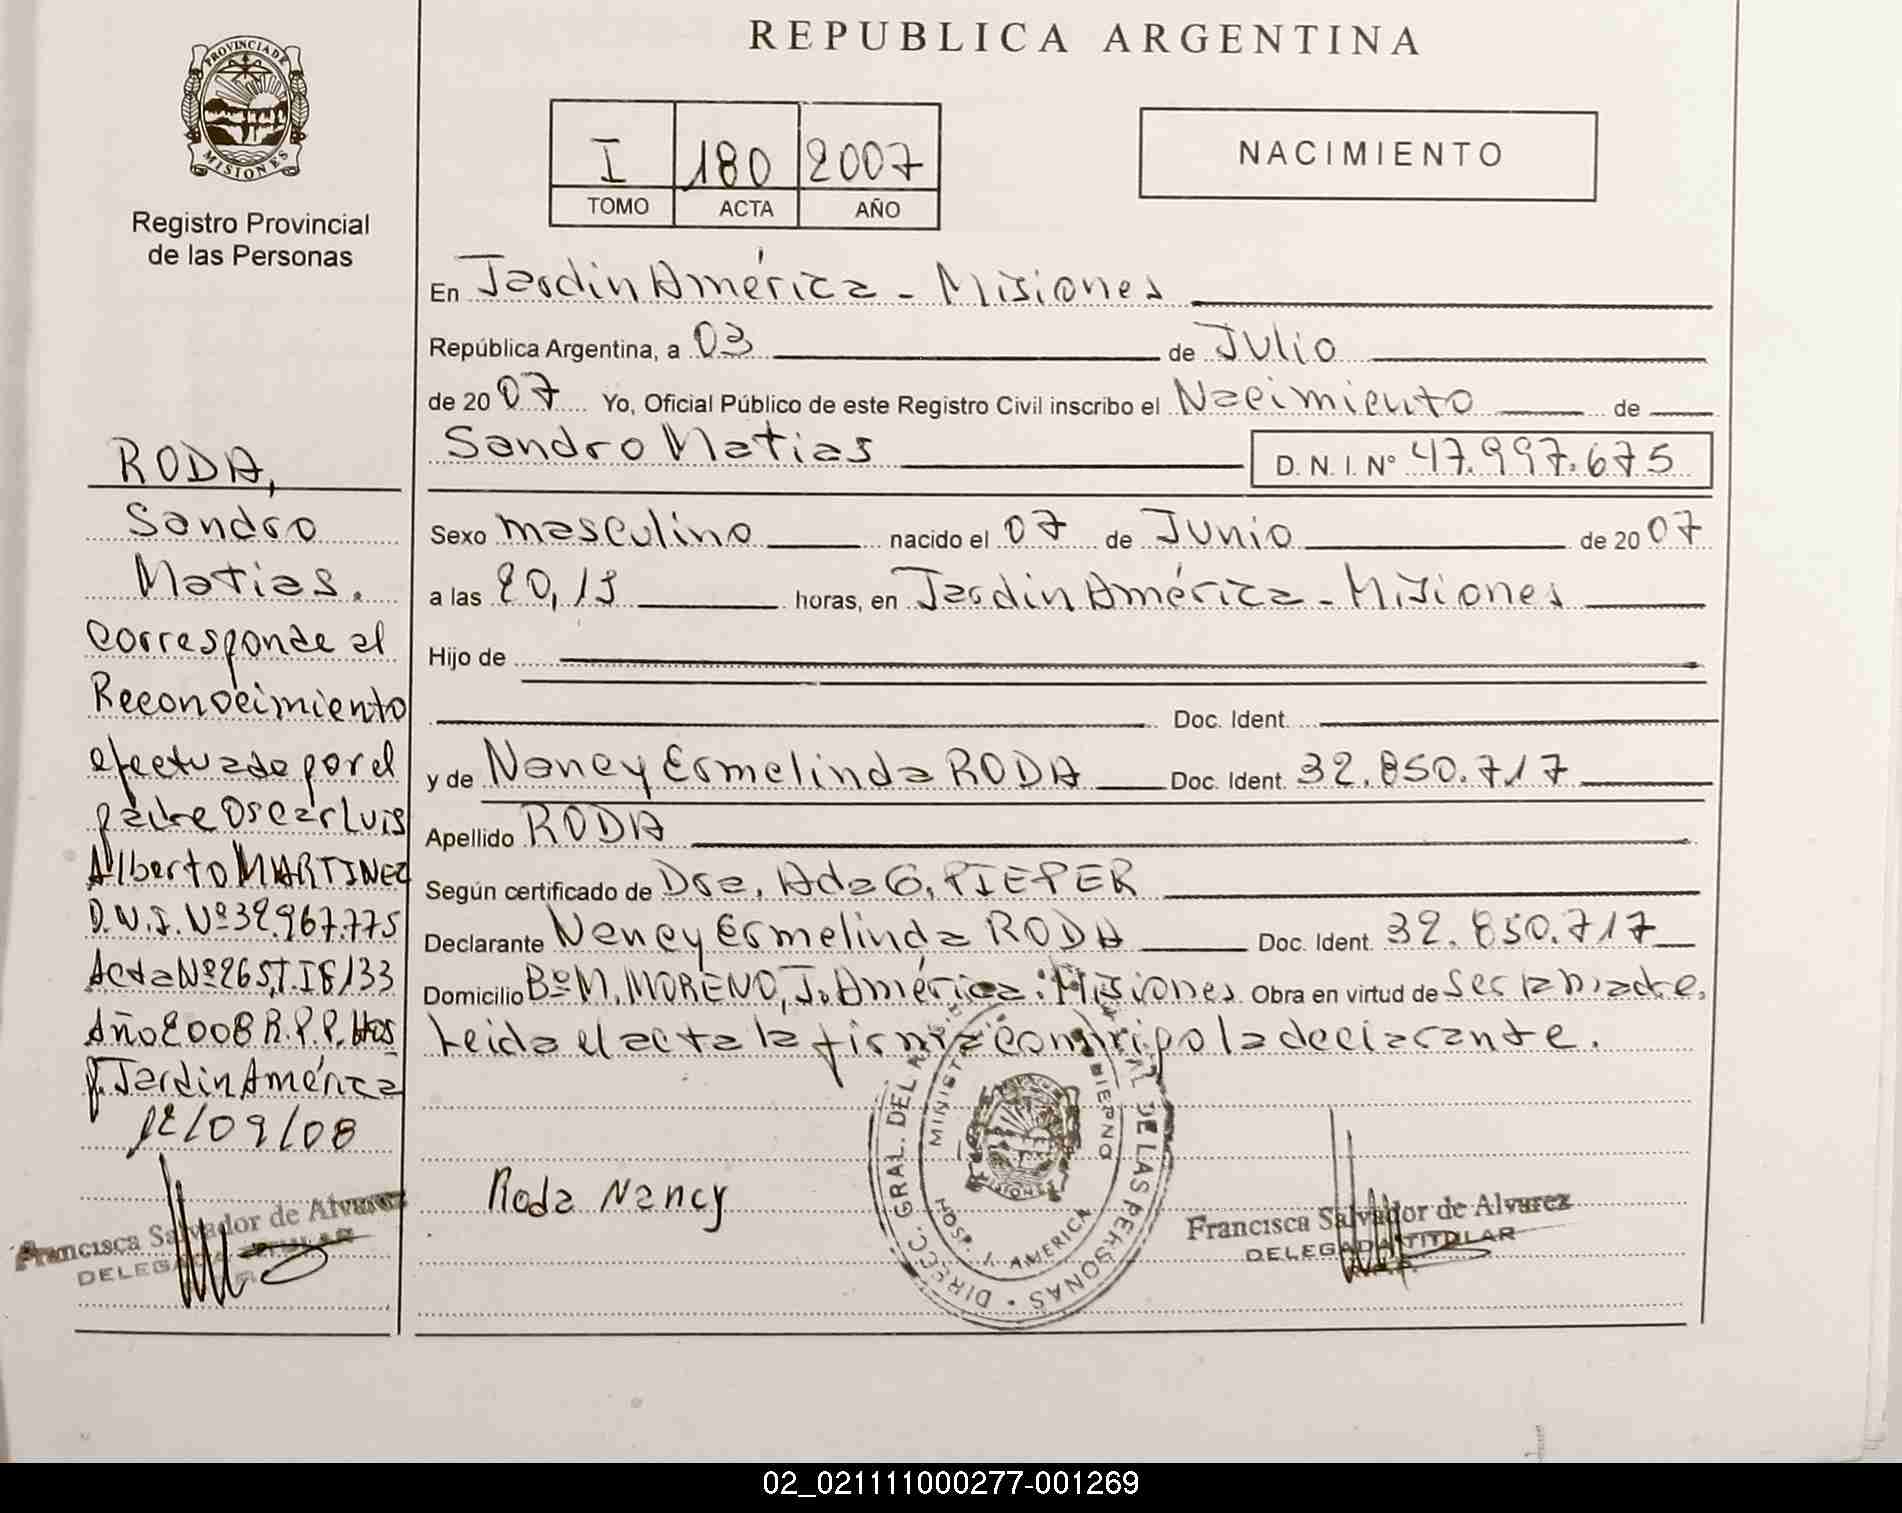 REPUBLICA ARGENTINA
PROVINCIA DE
MISIONES
Registro Provincial
de las Personas
I 180 2007
TOMO ACTA AÑO
NACIMIENTO
En Jardin América - Misiones
República Argentina, a 03 de Julio
de 2007 Yo, Oficial Público de este Registro Civil inscribo el Nacimiento de
Sandro Matias D. N. I. N° 47.997.675
Sexo masculino nacido el 07 de Junio de 2007
a las 20,15 horas, en Jardin América - Misiones
Hijo de
Doc. Ident.
y de Nancy Ermelinda RODA Doc. Ident. 32.850.717
Apellido RODA
Según certificado de Dra. Ada G. PIEPER
Declarante Nancy Ermelinda RODA Doc. Ident. 32.850.717
Domicilio Bº M. MORENO, J. América: Misiones Obra en virtud de ser la madre.
Leida el acta la firma conmigo la declarante.
Roda Nancy
DIRECC. GRAL. DEL DE LAS PERSONAS
HOSP. J. AMERICA
MISIONES
Francisca Salvador de Alvarez
DELEGADA TITULAR
RODA,
Sandro
Matias.
Corresponde al
Reconocimiento
efectuado por el
padre Oscar Luis
Alberto MARTINEZ
D.N.I. Nº 32.967.775
Acta Nº 265, T. I F/133
Año 2008 R.P.P. Hos
p. Jardin América
12/09/08
Francisca Salvador de Alvarez
DELEGADA TITULAR
02_021111000277-001269